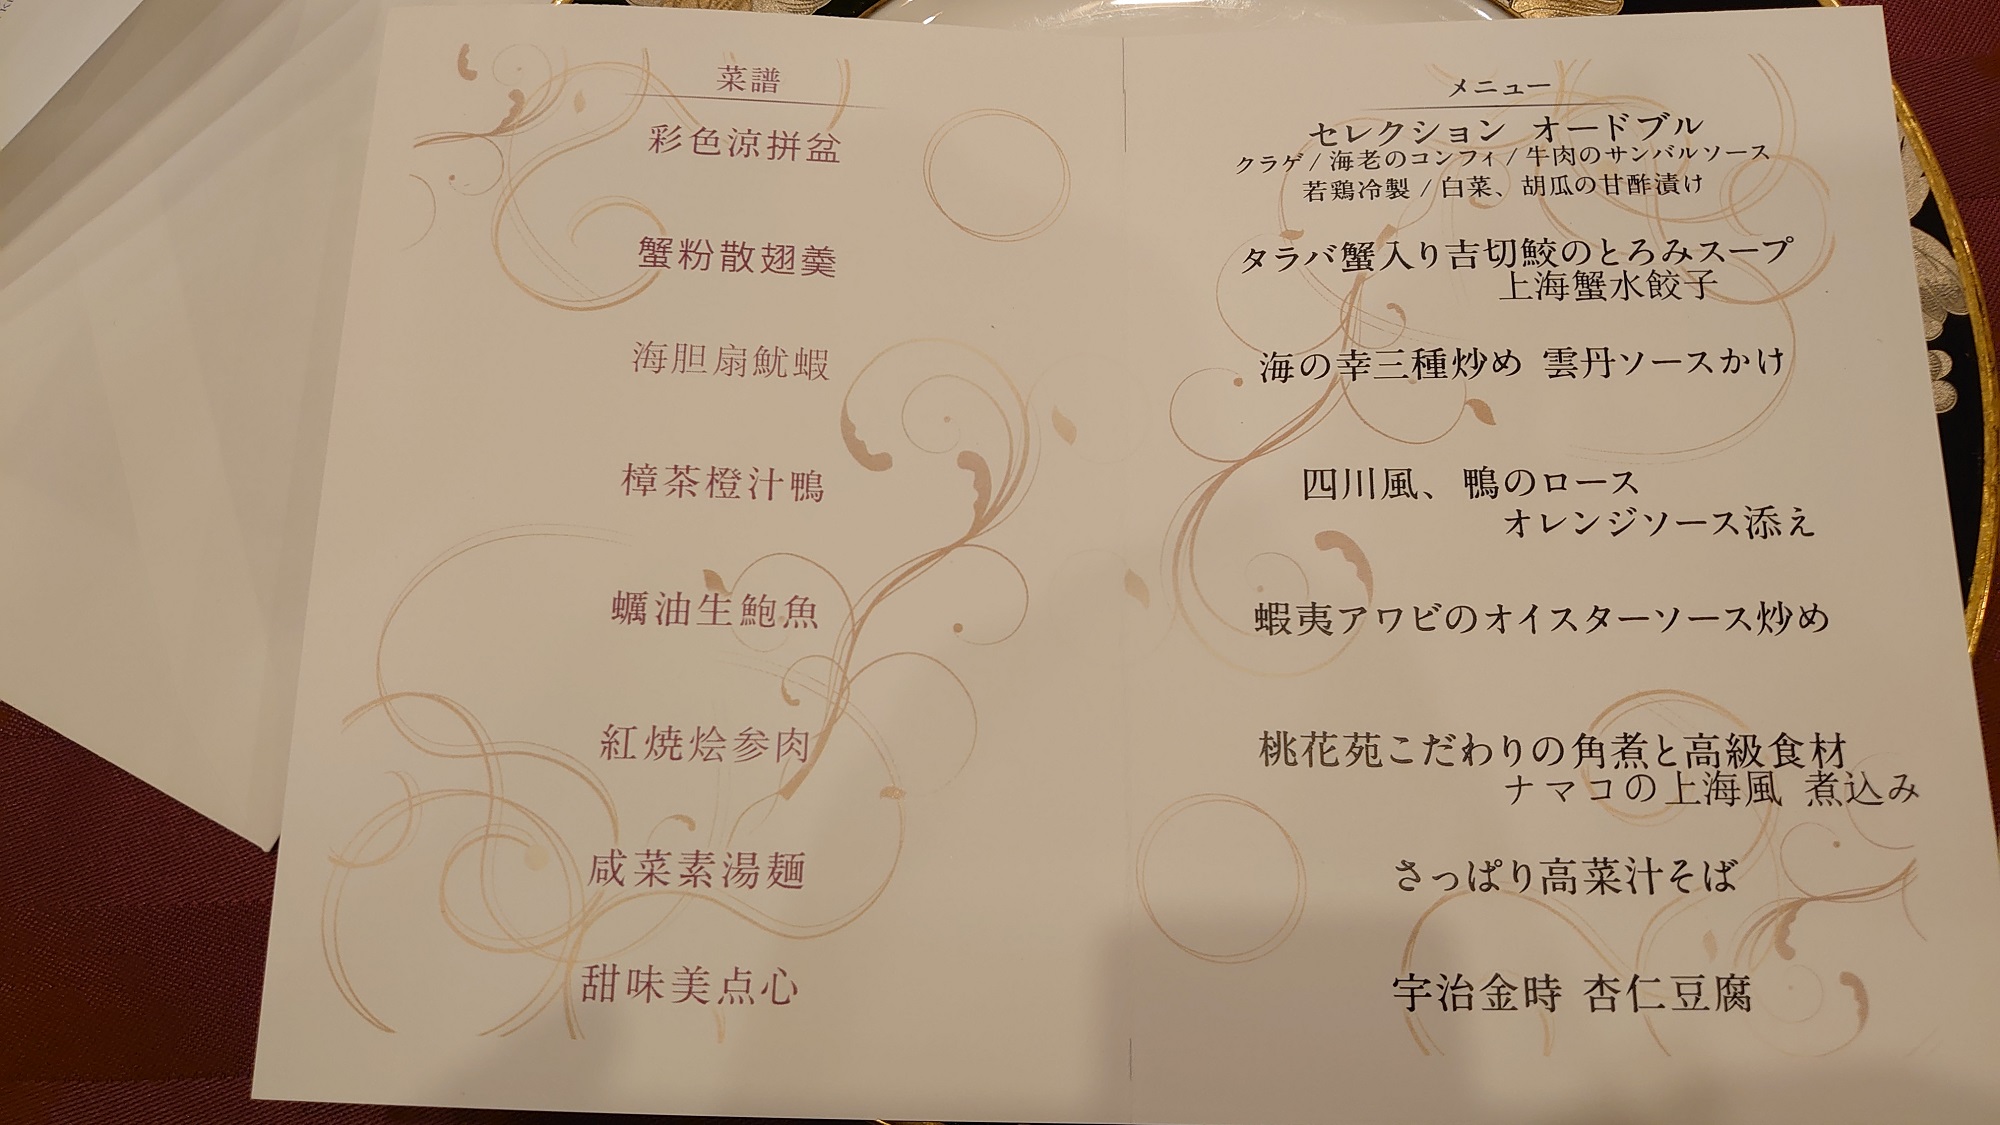 菜譜
彩色涼拼盆
蟹粉散翅羹
海胆扇魷蝦
樟茶橙汁鴨
蠣油生鮑魚
紅焼烩参肉
咸菜素湯麺
甜味美点心
メニュー
セレクション オードブル
クラゲ / 海老のコンフィ / 牛肉のサンバルソース
若鶏冷製 / 白菜、胡瓜の甘酢漬け
タラバ蟹入り吉切鮫のとろみスープ
上海蟹水餃子
海の幸三種炒め 雲丹ソースかけ
四川風、鴨のロース
オレンジソース添え
蝦夷アワビのオイスターソース炒め
桃花苑こだわりの角煮と高級食材
ナマコの上海風 煮込み
さっぱり高菜汁そば
宇治金時 杏仁豆腐